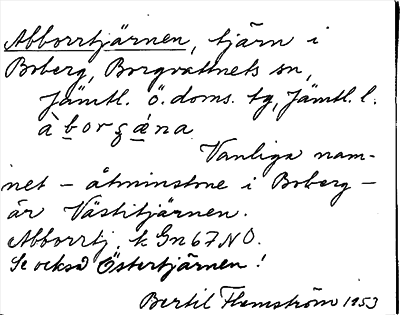 Abborrtjärnen, tjärn i
Boberg, Borgvattnets sn,
Jämtl. ö. doms. tg, Jämtl. l.
àborgæ̀na
Vanliga nam-
net – åtminstone i Boberg –
är Västitjärnen.
Abborrtj. k Gn67NO.
Se också Östertjärnen!
Bertil Flemström 1953